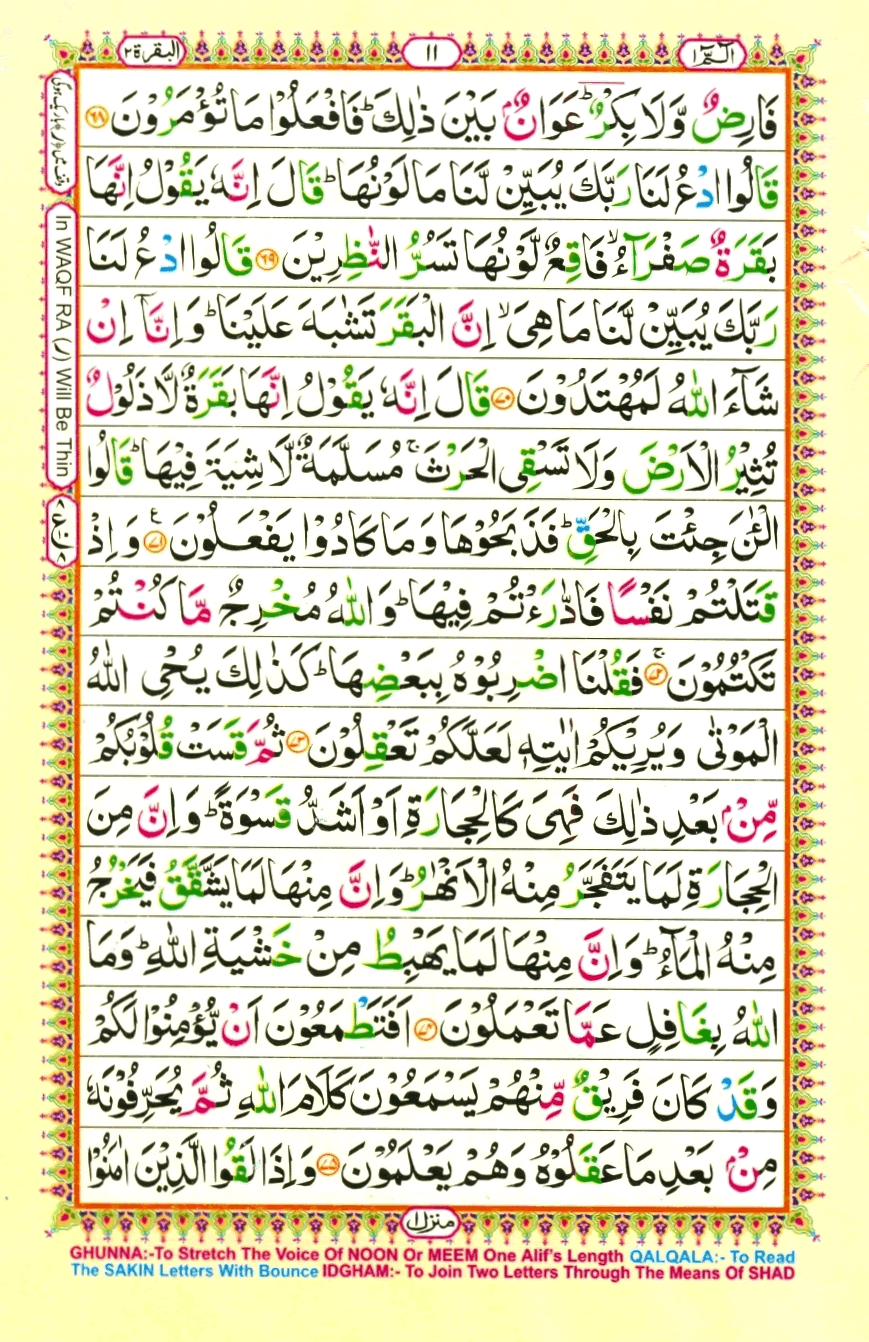 الٓمّٓ ١
١١
البقرة ٢
فَارِضٌ وَّلَا بِكْرٌ ؕ عَوَانٌۢ بَيْنَ ذٰلِكَ ؕ فَافْعَلُوْا مَا تُؤْمَرُوْنَ ﴿۶۸﴾
قَالُوا ادْعُ لَنَا رَبَّكَ يُبَيِّنْ لَّنَا مَا لَوْنُهَا ؕ قَالَ اِنَّهٗ يَقُوْلُ اِنَّهَا
بَقَرَةٌ صَفْرَآءُ ۙ فَاقِعٌ لَّوْنُهَا تَسُرُّ النّٰظِرِيْنَ ﴿۶۹﴾ قَالُوا ادْعُ لَنَا
رَبَّكَ يُبَيِّنْ لَّنَا مَا هِىَ ۙ اِنَّ الْبَقَرَ تَشٰبَهَ عَلَيْنَا ؕ وَاِنَّاۤ اِنْ
شَآءَ اللّٰهُ لَمُهْتَدُوْنَ ﴿۷۰﴾ قَالَ اِنَّهٗ يَقُوْلُ اِنَّهَا بَقَرَةٌ لَّا ذَلُوْلٌ
تُثِيْرُ الْاَرْضَ وَلَا تَسْقِى الْحَرْثَ ۚ مُسَلَّمَةٌ لَّا شِيَةَ فِيْهَا ؕ قَالُوا
الْـٰٔنَ جِئْتَ بِالْحَقِّ ؕ فَذَبَحُوْهَا وَمَا كَادُوْا يَفْعَلُوْنَ ﴿۷۱﴾ ع وَاِذْ
قَتَلْتُمْ نَفْسًا فَادّٰرَءْتُمْ فِيْهَا ؕ وَاللّٰهُ مُخْرِجٌ مَّا كُنْتُمْ
تَكْتُمُوْنَ ﴿۷۲﴾ ۚ فَقُلْنَا اضْرِبُوْهُ بِبَعْضِهَا ؕ كَذٰلِكَ يُحْىِ اللّٰهُ
الْمَوْتٰى وَيُرِيْكُمْ اٰيٰتِهٖ لَعَلَّكُمْ تَعْقِلُوْنَ ﴿۷۳﴾ ثُمَّ قَسَتْ قُلُوْبُكُمْ
مِّنْۢ بَعْدِ ذٰلِكَ فَهِىَ كَالْحِجَارَةِ اَوْ اَشَدُّ قَسْوَةً ؕ وَاِنَّ مِنَ
الْحِجَارَةِ لَمَا يَتَفَجَّرُ مِنْهُ الْاَنْهٰرُ ؕ وَاِنَّ مِنْهَا لَمَا يَشَّقَّقُ فَيَخْرُجُ
مِنْهُ الْمَآءُ ؕ وَاِنَّ مِنْهَا لَمَا يَهْبِطُ مِنْ خَشْيَةِ اللّٰهِ ؕ وَمَا
اللّٰهُ بِغَافِلٍ عَمَّا تَعْمَلُوْنَ ﴿۷۴﴾ اَفَتَطْمَعُوْنَ اَنْ يُّؤْمِنُوْا لَكُمْ
وَقَدْ كَانَ فَرِيْقٌ مِّنْهُمْ يَسْمَعُوْنَ كَلَامَ اللّٰهِ ثُمَّ يُحَرِّفُوْنَهٗ
مِنْۢ بَعْدِ مَا عَقَلُوْهُ وَهُمْ يَعْلَمُوْنَ ﴿۷۵﴾ وَاِذَا لَقُوا الَّذِيْنَ اٰمَنُوْا
In WAQF RA (ر) Will Be Thin
منزل ١
GHUNNA:-To Stretch The Voice Of NOON Or MEEM One Alif's Length QALQALA:- To Read
The SAKIN Letters With Bounce IDGHAM:- To Join Two Letters Through The Means Of SHAD